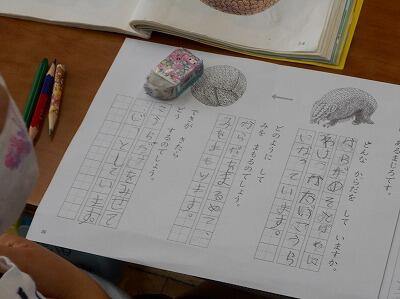 あるまじろです。
どんな からだを して いますか。
かたいこうら
なっています。
どのように して
みを まもるのでしょう。
からだをまるめて、
みをまもります。
てきが きたら
どう するのでしょう。
こうらをみせて
じっとしています。